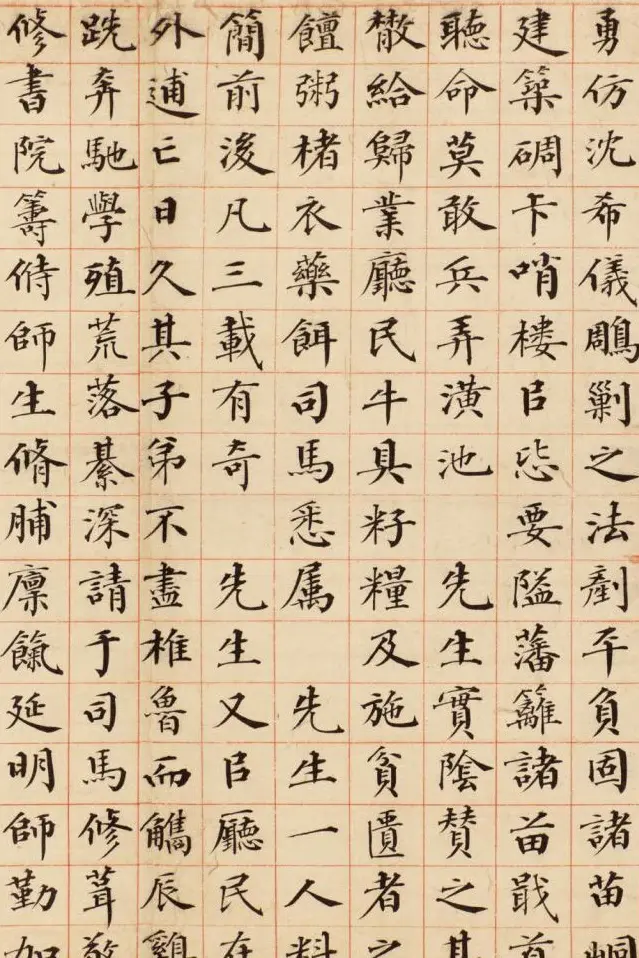 勇仿沈希儀鵰剿之法剷平負固諸苗峒
建築碉卡哨楼㠯毖要隘藩籬諸苗戢首
聽命莫敢兵弄潢池 先生實陰贊之其
㪚給歸業廳民牛具籽糧及施貧匱者之
饘粥楮衣藥餌司馬悉属 先生一人料
簡前後凡三載有奇 先生又㠯廳民在
外逋亡日久其子弟不盡椎魯而觿辰雞
跣奔馳學殖荒落綦深請于司馬修葺敬
修書院籌偫師生脩脯廩餼延明師勤加